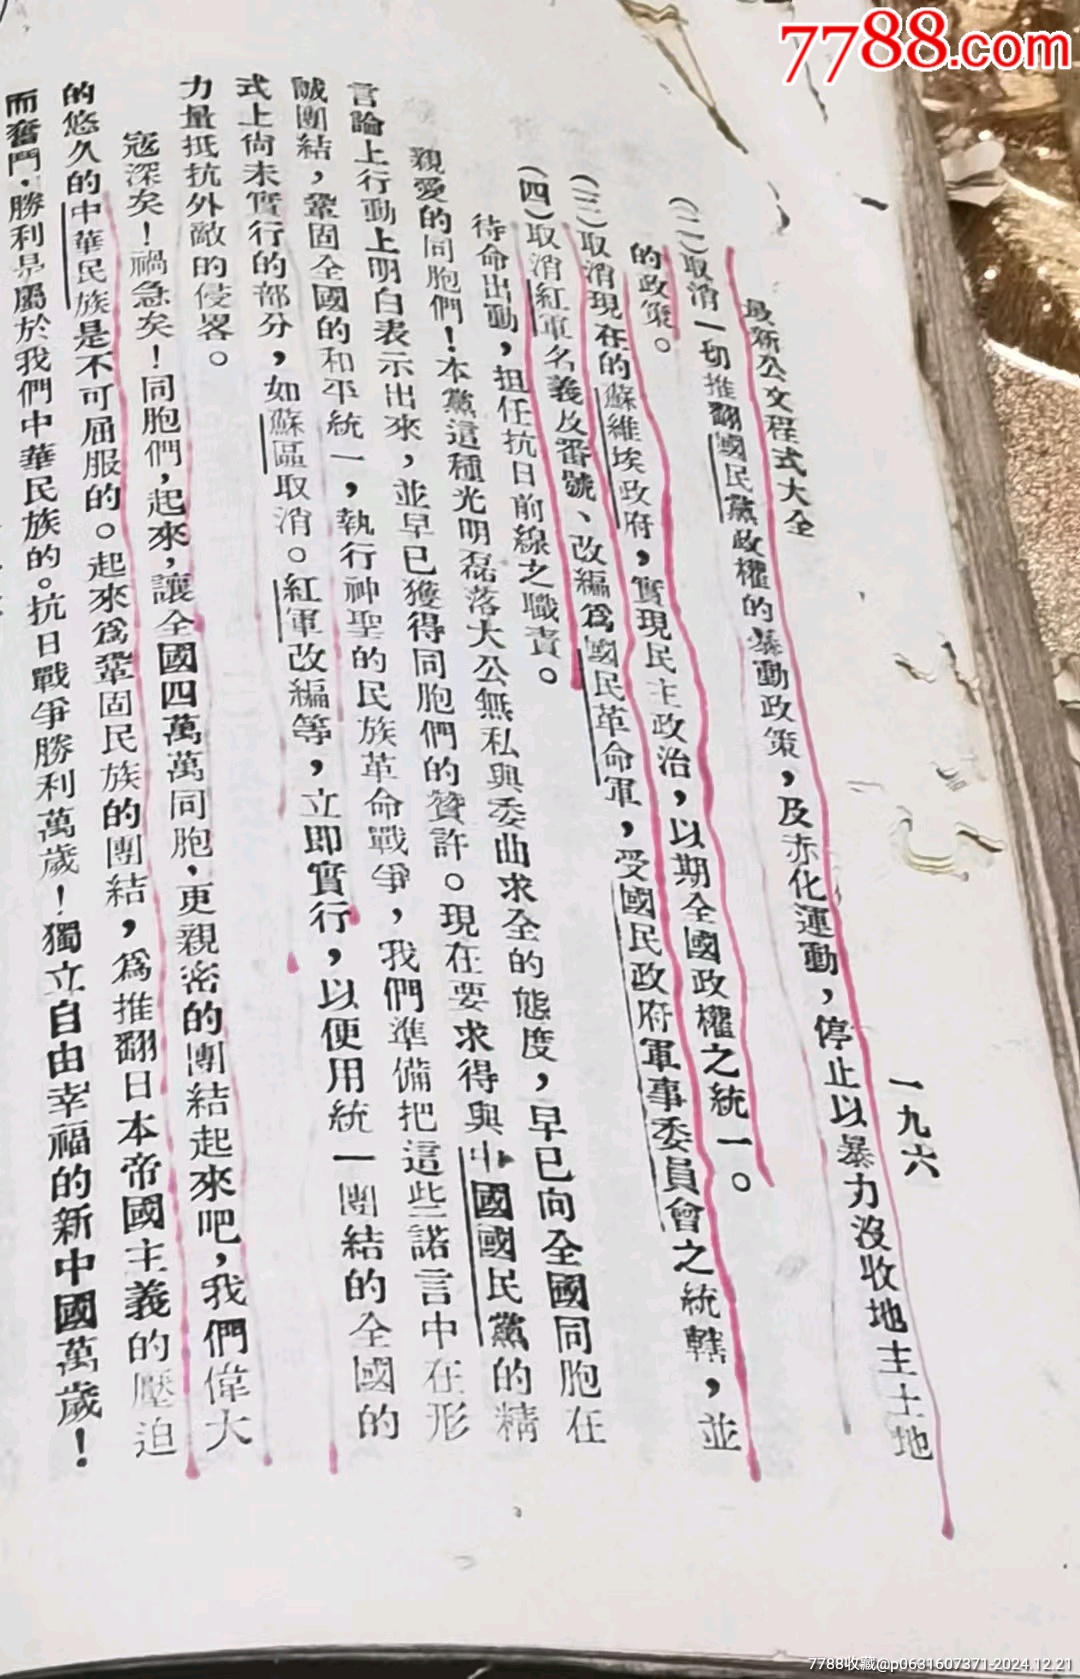 7788.com
最新公文程式大全
一九六
(二)取消一切推翻國民黨政權的暴動政策,及赤化運動,停止以暴力沒收地主土地
的政策。
(三)取消現在的蘇維埃政府,實現民主政治,以期全國政權之統一。
(四)取消紅軍名義及番號、改編爲國民革命軍,受國民政府軍事委員會之統轄,並
待命出動,担任抗日前線之職責。
親愛的同胞們!本黨這種光明磊落大公無私與委曲求全的態度,早已向全國同胞在
言論上行動上明白表示出來,並早已獲得同胞們的贊許。現在要求得與中國國民黨的精
誠團結,鞏固全國的和平統一,執行神聖的民族革命戰爭,我們準備把這些諾言中在形
式上尚未實行的部分,如蘇區取消。紅軍改編等,立即實行,以便用統一團結的全國的
力量抵抗外敵的侵畧。
寇深矣!禍急矣!同胞們,起來,讓全國四萬萬同胞、更親密的團結起來吧,我們偉大
的悠久的中華民族是不可屈服的。起來爲鞏固民族的團結,爲推翻日本帝國主義的壓迫
而奮鬥,勝利是屬於我們中華民族的。抗日戰爭勝利萬歲!獨立自由幸福的新中國萬歲!
7788收藏@p0631607371-2024.12.21